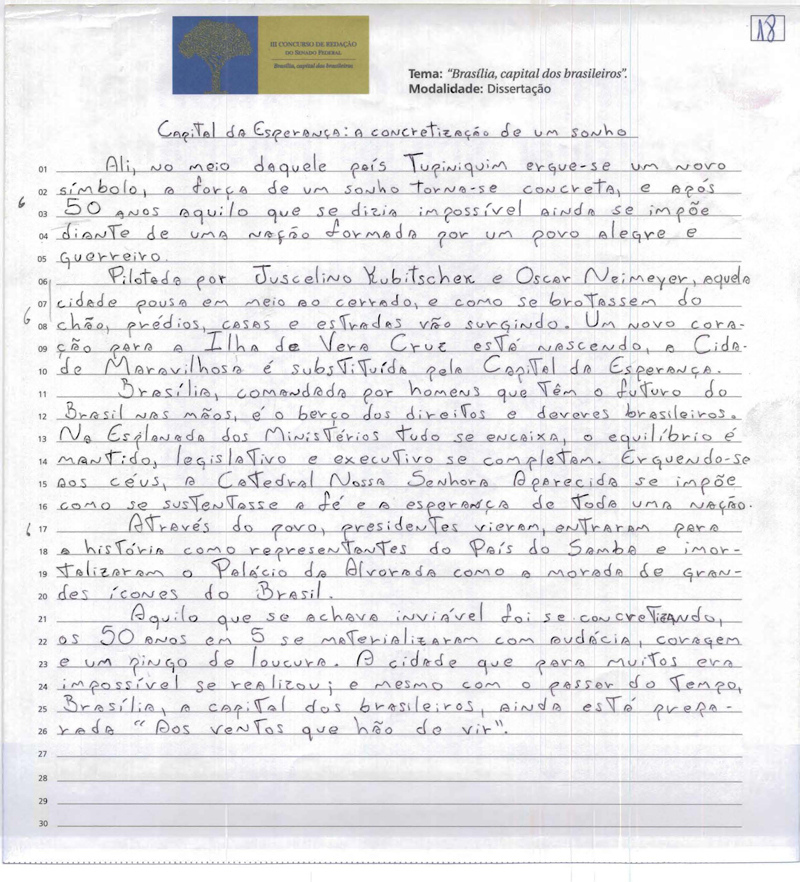 III CONCURSO DE REDAÇÃO
DO SENADO FEDERAL
Brasília, capital dos brasileiros
18
Tema: "Brasília, capital dos brasileiros".
Modalidade: Dissertação
Capital da Esperança: a concretização de um sonho
01 Ali, no meio daquele país Tupiniquim ergue-se um novo
02 símbolo, a força de um sonho torna-se concreta, e após
6
03 50 anos aquilo que se dizia impossível ainda se impõe
04 diante de uma nação formada por um povo alegre e
05 guerreiro.
06 Pilotada por Juscelino Kubitschek e Oscar Neimeyer, aquela
07 cidade pousa em meio ao cerrado, e como se brotassem do
6
08 chão, prédios, casas e estradas vão surgindo. Um novo cora-
09 ção para a Ilha de Vera Cruz está nascendo, a Cida-
10 de Maravilhosa é substituída pela Capital da Esperança.
11 Brasília, comandada por homens que têm o futuro do
12 Brasil nas mãos, é o berço dos direitos e deveres brasileiros.
13 Na Esplanada dos Ministérios tudo se encaixa, o equilíbrio é
14 mantido, legislativo e executivo se completam. Erguendo-se
15 aos céus, a Catedral Nossa Senhora Aparecida se impõe
16 como se sustentasse a fé e a esperança de toda uma nação.
6
17 Através do povo, presidentes vieram, entraram para
18 a história como representantes do País do Samba e imor-
19 talizaram o Palácio da Alvorada como a morada de gran-
20 des ícones do Brasil.
21 Aquilo que se achava inviável foi se concretizando,
22 os 50 anos em 5 se materializaram com audácia, coragem
23 e um pingo de loucura. A cidade que para muitos era
24 impossível se realizou; e mesmo com o passar do tempo,
25 Brasília, a capital dos brasileiros, ainda está prepa-
26 rada "Aos ventos que hão de vir".
27
28
29
30